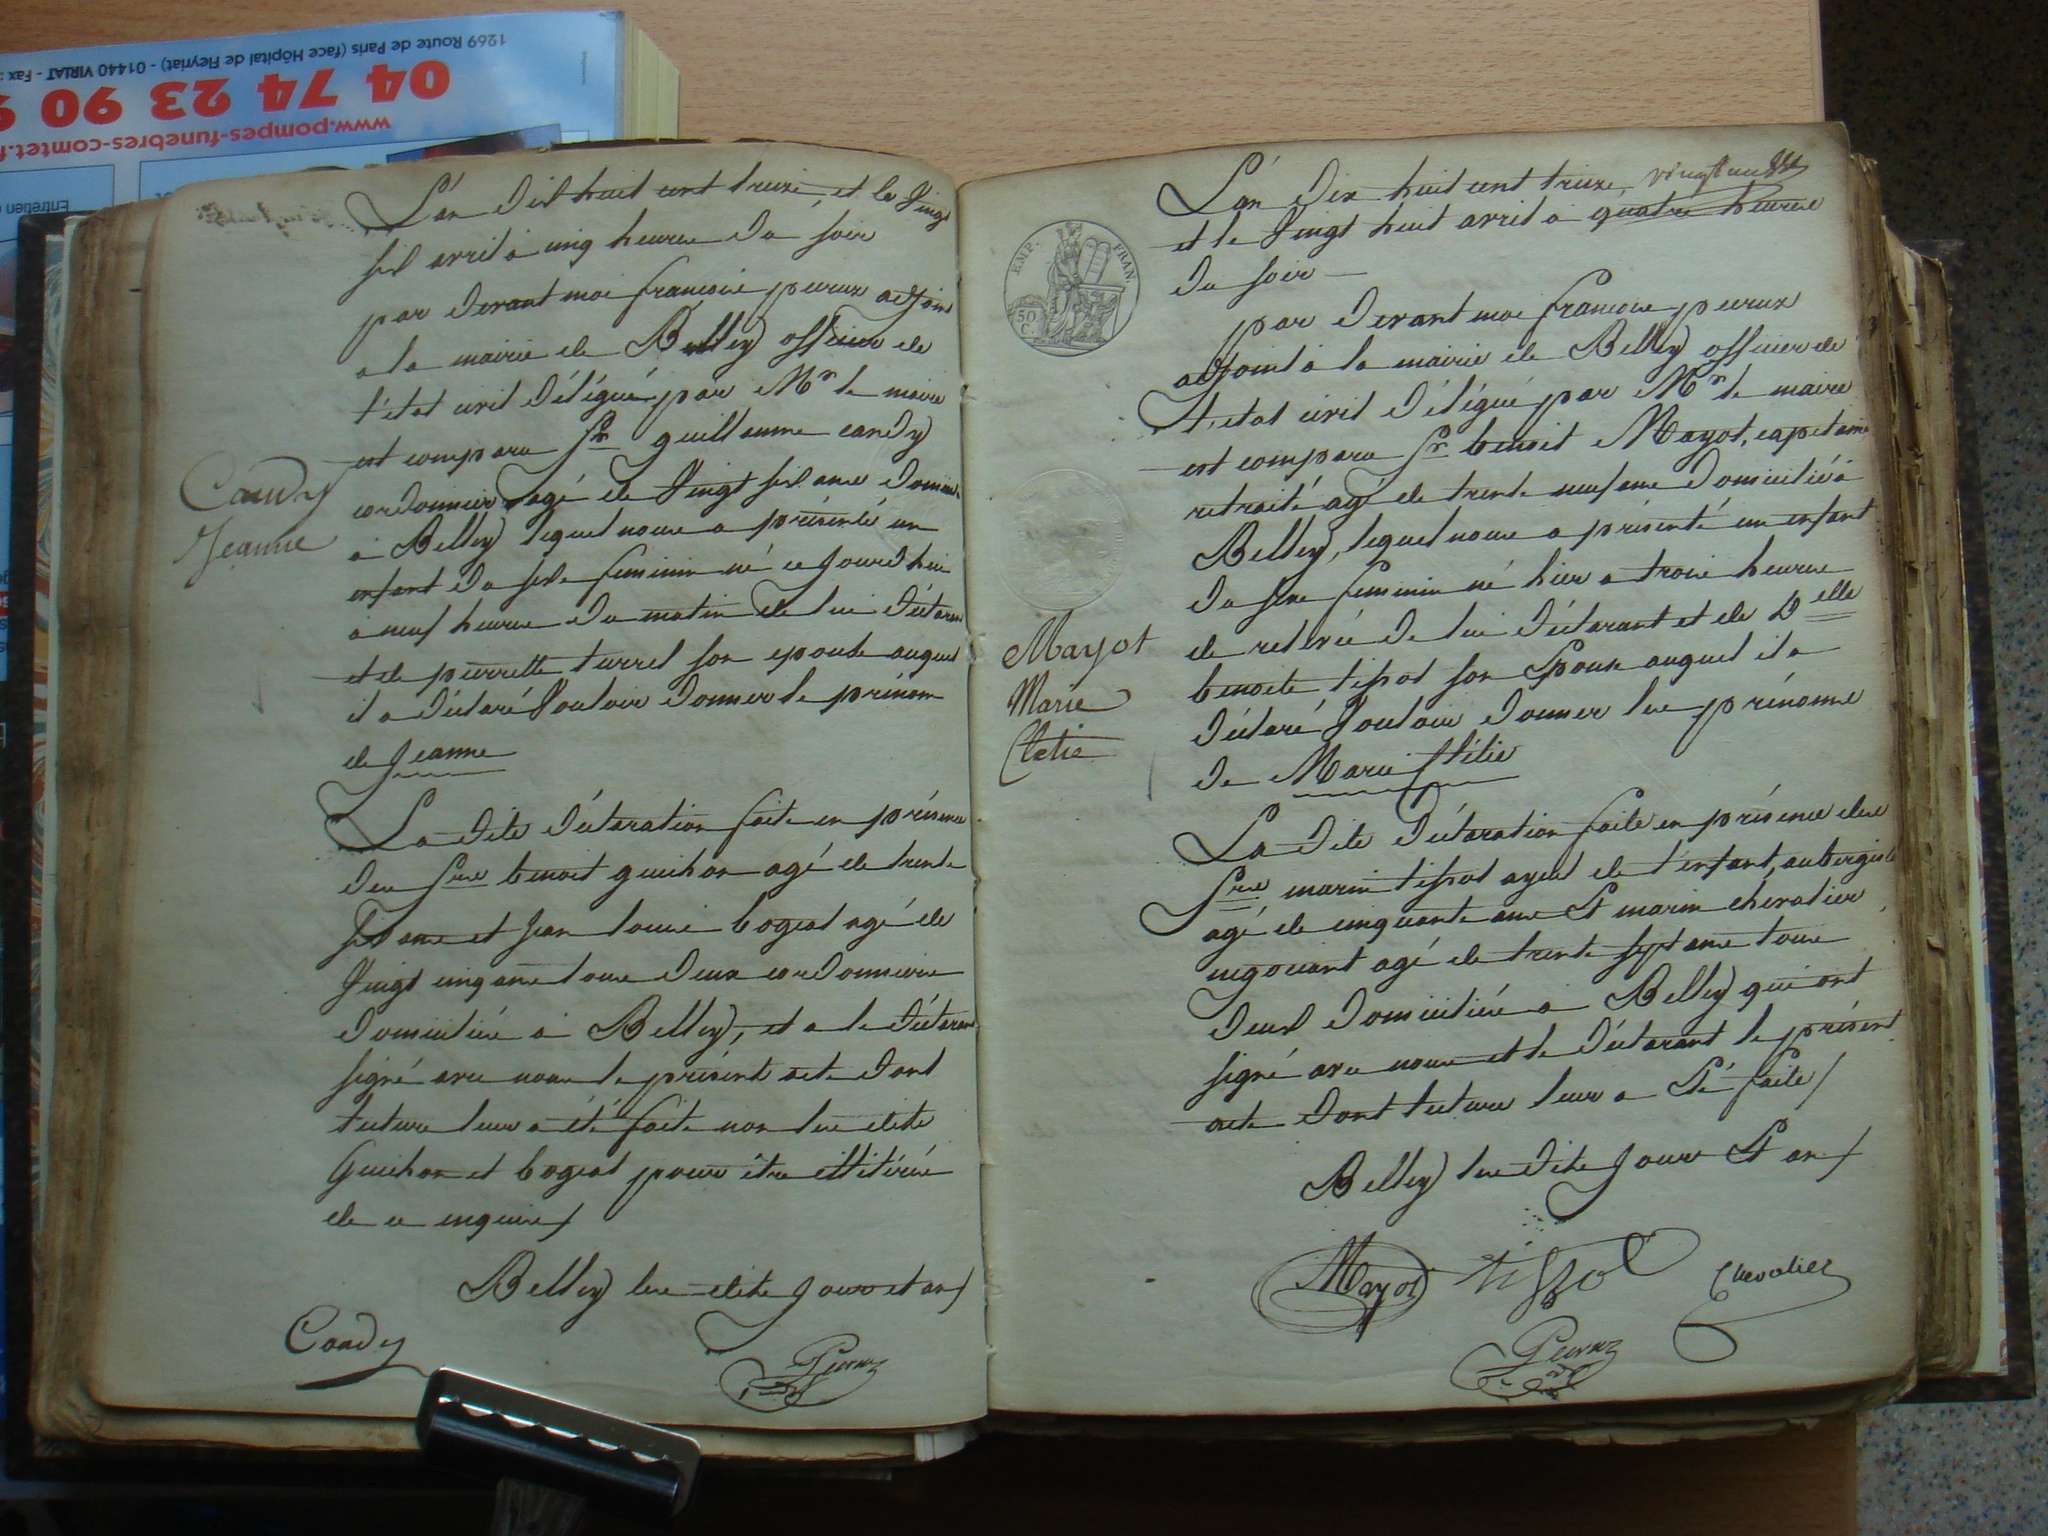 1269 Route de Paris (face Hôpital de Fleyriat) - 01440 VIRIAT - Fax
04 74 23 90 9
www.pompes-funebres-comtet.f
Entretien
L'an dix huit cent treize, et le Vingt
six avril à cinq heures du soir
par devant moi françois peruz adjoint
a la mairie de Belley officier de
l'état civil délégué par Mr le maire
est comparu Sr guillaume candy
cordonnier agé de Vingt six ans domici
à Belley lequel nous a présenté un
enfant du sexe féminin né ce jourd'hui
à neuf heures du matin de lui déclarant
et de pierrette turrel son epouse auquel
il a déclaré Vouloir donner le prénom
de Jeanne
Candy
Jeanne
La dite déclaration faite en présence
des Srs benoit guichon agé de trente
six ans et Jean louis bogeat agé de
Vingt cinq ans tous deux cordonniers
domiciliés à Belley, et a le déclarant
signé avec nous le présent acte dont
lecture leur a été faite non les dits
Guichon et bogeat pour être illitérés
de ce enquis
Belley les dits jour et an
Candy
Peruz
L'an dix huit cent treize
et le Vingt huit avril à quatre heures
du soir
EMP. FRAN.
50 C.
par devant moi françois peruz
adjoint à la mairie de Belley officier de
l'état civil délégué par Mr le maire
est comparu Sr benoit Mayot, capitaine
retraité agé de trente neuf ans domicilié à
Belley, lequel nous a présenté un enfant
du sexe féminin né hier a trois heures
de relevée de lui déclarant et de Delle
benoite tissot son Epouse auquel il a
déclaré Vouloir donner les prénoms
de Marie Clélie
Mayot
Marie
Clelie
La dite déclaration faite en présence des
Srs marin tissot ayeul de l'enfant, aubergiste
agé de cinquante ans Et marin chevalier
negociant agé de trente sept ans tous
deux domiciliés à Belley qui ont
signé avec nous et le déclarant le présent
acte dont lecture leur a Eté faite
Belley les dits jour Et an
Mayot tissot Chevalier
Peruz